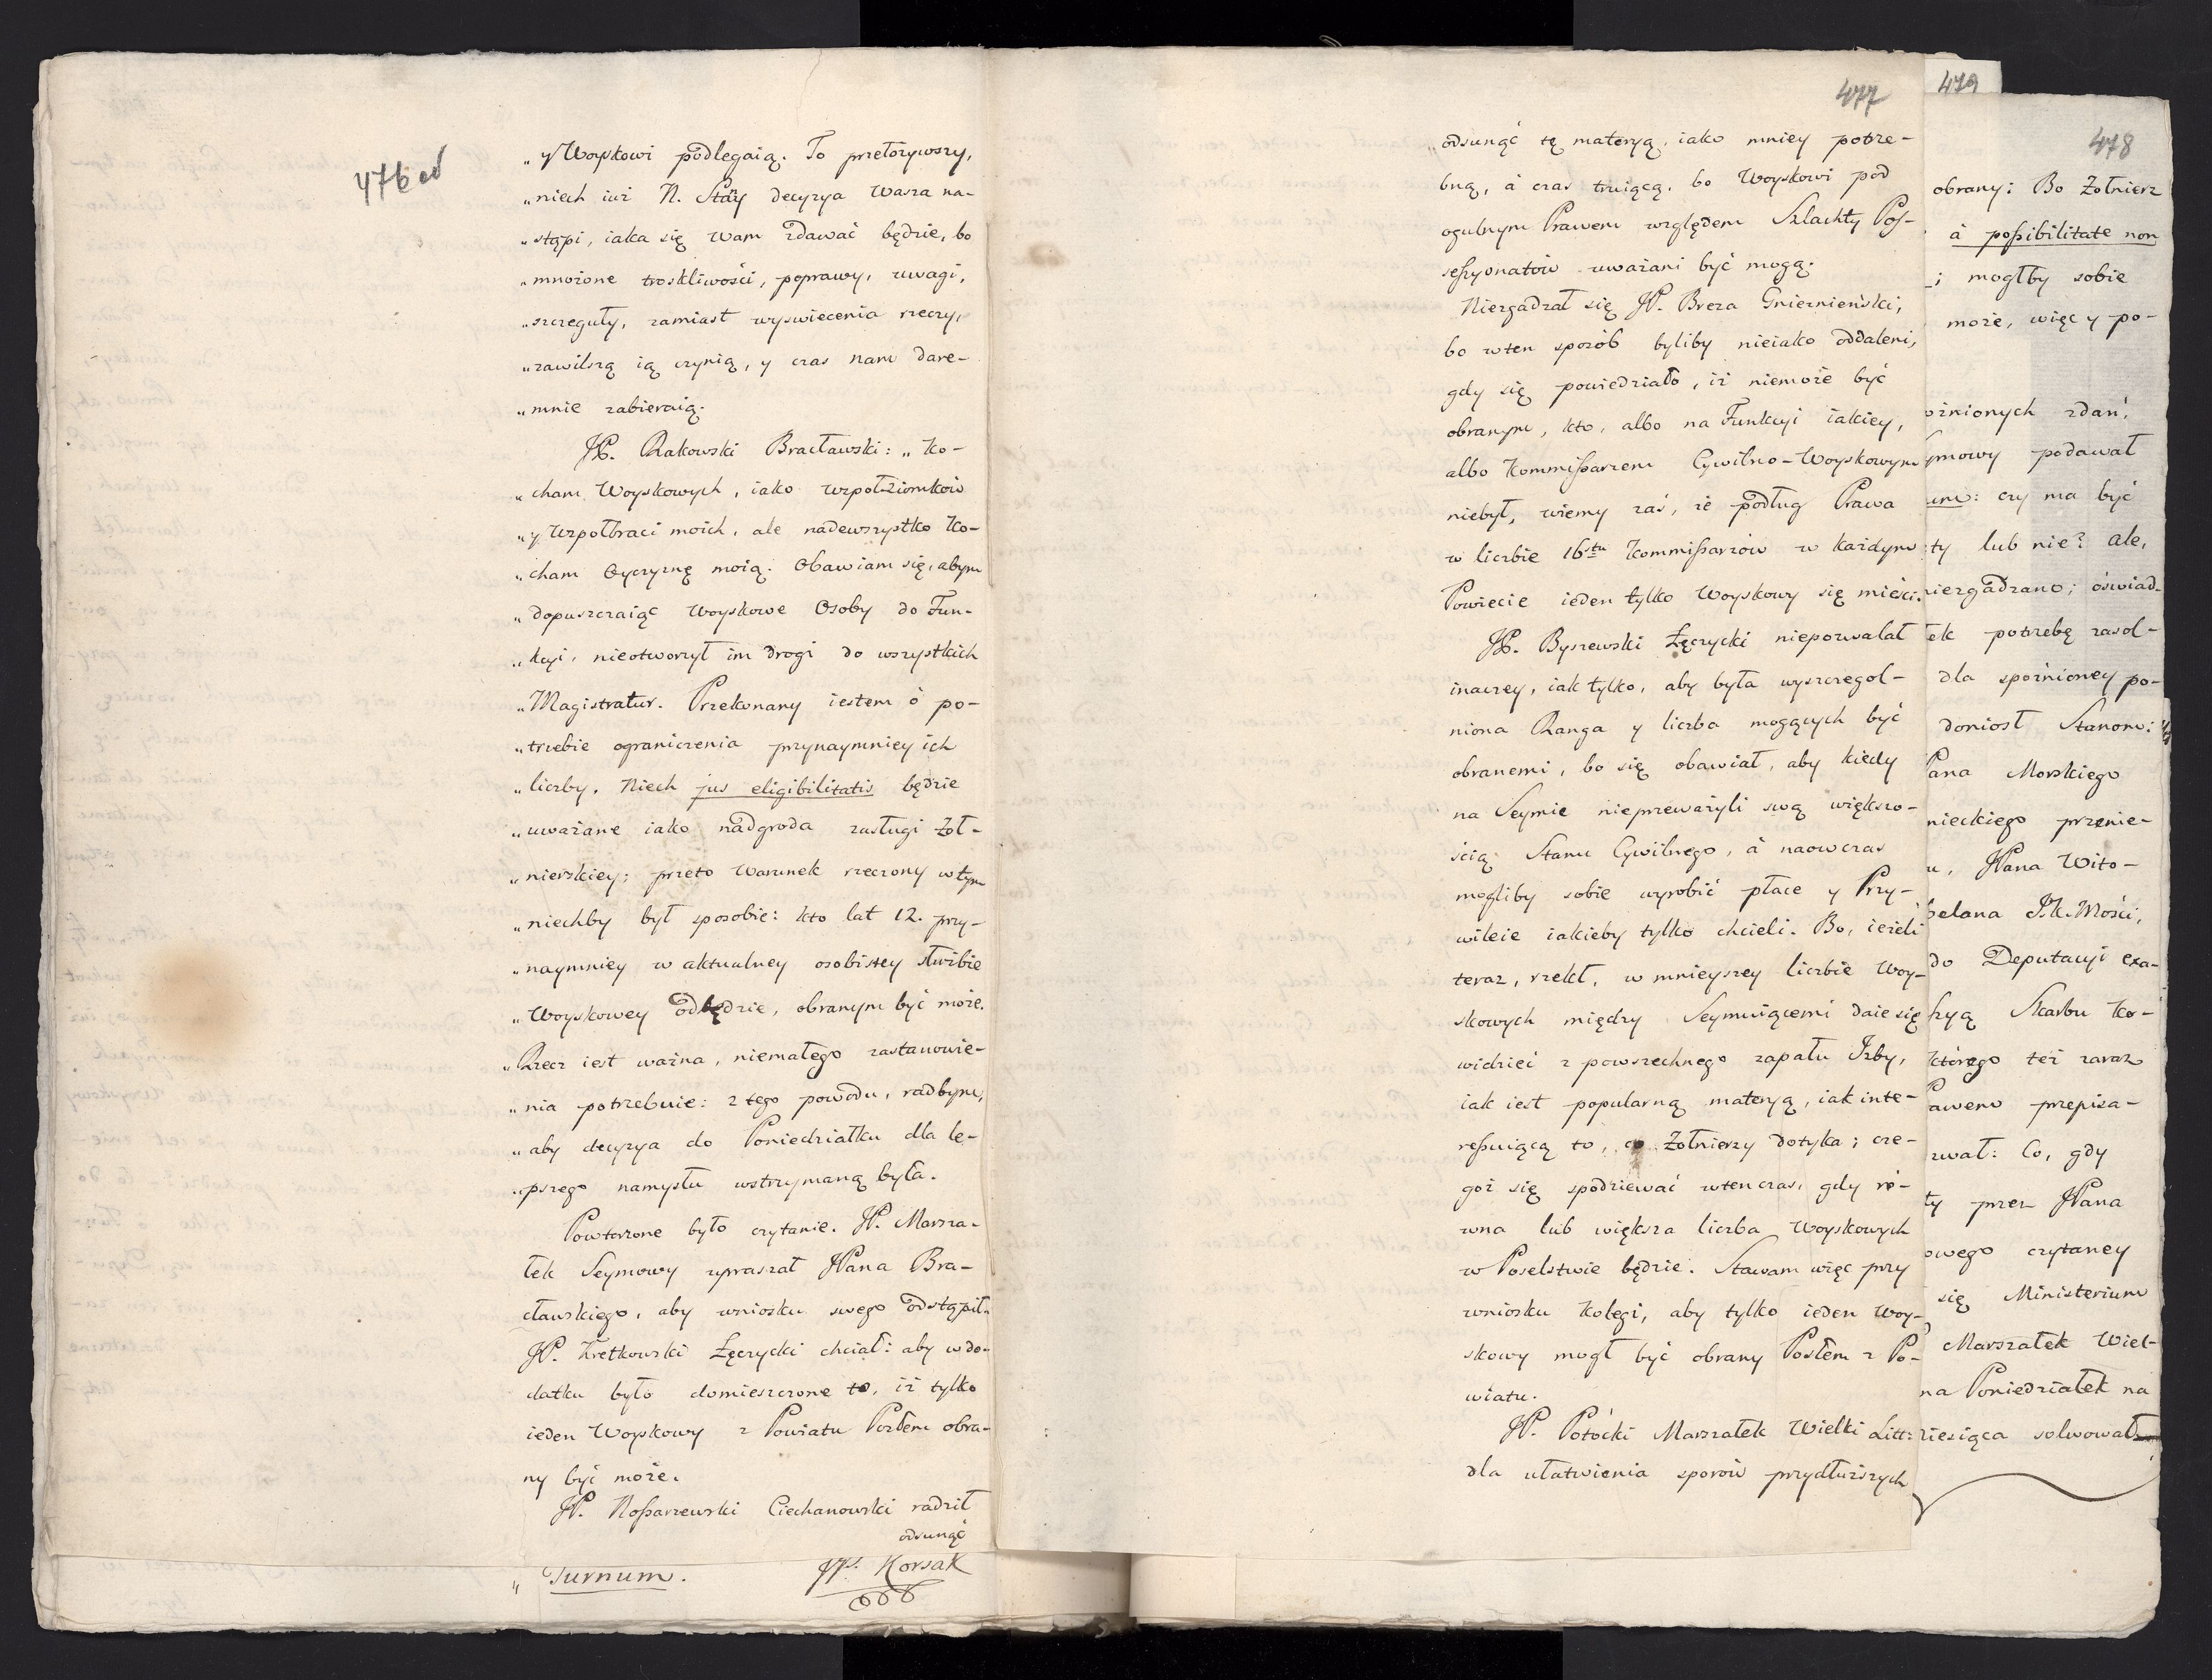 476 od
„ y Woyskowi podlegaią. To przełożywszy,
„ niech iuż N. Stany decyzya Wasza na-
„ stąpi, iaka się Wam zdawać będzie, bo
„ mnożone troskliwości, poprawy, uwagi,
„ szczeguły, zamiast wyswiecenia rzeczy,
„ zawilszą ią czynią, y czas nam dare-
„ mnie zabieraią.
JP. Rakowski Bracławski: „ Ko-
„ cham Woyskowych, iako wspołziomków
„ y Wspołbraci moich, ale nadewszystko ko-
„ cham Oyczyznę moią. Obawiam się, abym
„ dopuszczaiąc Woyskowe Osoby do Fun-
„ kcyi, nieotworzył im drogi do wszystkich
„ Magistratur. Przekonany iestem ó po-
„ trzebie ograniczenia przynaymniey ich
„ liczby. Niech jus eligibilitatis będzie
„ uważane iako nadgroda zasługi żoł-
„ nierskiey; przeto Warunek rzeczony w tym
„ niechby był sposobie: kto lat 12. przy-
„ naymniey w aktualney osobistey służbie
„ Woyskowey odbędzie, obranym być może.
„ Rzecz iest ważna, niemałego zastanowie-
„ nia potrzebuie: z tego powodu, radbym,
„ aby decyzya do Poniedziałku dla le-
„ pszego namysłu wstrzymaną była.
Powtorzone było czytanie. JP. Marsza-
łek Seymowy upraszał JPana Bra-
cławskiego, aby wniosku swego odstąpił.
JP. Kretkowski Łęczycki chciał: aby w do-
datku było domieszczone to, iż tylko
ieden Woyskowy z Powiatu Posłem obra-
ny być może.
JP. Nossarzewski Ciechanowski radził
odsunąć
„ Turnum. JP. Korsak
477
„ odsunąć tę materyą, iako mniey potrze-
bną, á czas truiącą, bo Woyskowi pod
ogulnym Prawem względem Szlachty Pos-
sessyonatów uważani być mogą.
Niezgadzał się JP. Breza Gniezniénski,
bo w ten sposób byliby nieiako oddaleni,
gdy się powiedziało, iż niemoże być
obranym, kto, albo na Funkcyi iakiey,
albo Kommissarzem Cywilno-Woyskowym
niebył, wiemy zaś, że podług Prawa
w liczbie 16stu Kommissarzów w każdym
Powiecie ieden tylko Woyskowy się mieści.
JP. Byszewski Łęczycki niepozwalał
inaczey, iak tylko, aby była wyszczegol-
niona Ranga y liczba mogących być
obranemi, bo się obawiał, aby kiedy
na Seymie nieprzeważyli swą większo-
ścią Stanu Cywilnego, á naowczas
mogliby sobie wyrobić płace y Przy-
wileie iakieby tylko chcieli. Bo, ieżeli
teraz, rzekł, w mnieyszey liczbie Woy-
skowych między Seymuiącemi daie się
widzieć z powszechnego zapału Izby,
iak iest popularną materyą, iak inte-
ressuiącą to, co Żołnierzy dotyka; cze-
goż się spodziewać wtenczas, gdy ró-
wna lub większa liczba Woyskowych
w Poselstwie będzie. Stawam więc przy
wniosku Kolegi, aby tylko ieden Woy-
skowy mogł być obrany Posłem z Po-
wiatu.
JP. Potocki Marszałek Wielki Litt:
dla ułatwienia sporów przydłuższych
479
478
obrany: Bo Żołnierz
á possibilitate non
; mogłby sobie
może, więc y po-
óżnionych zdań,
ymowy podawał
um: czy ma być
ty lub nie? ale,
niezgadzano; óswiad-
ek potrzebę zasol-
dla spóźnioney po-
doniosł Stanom:
Pana Morskiego
nieckiego przenie-
u, JPana Wito-
belana J.K.Mości,
do Deputacyi exa-
ssyą Skarbu Ko-
którego też zaraz
Prawem przepisa-
zwał: Co, gdy
ty przez JPana
owego czytaney
się Ministerium
Marszałek Wiel-
na Poniedziałek na
Miesiąca solwował